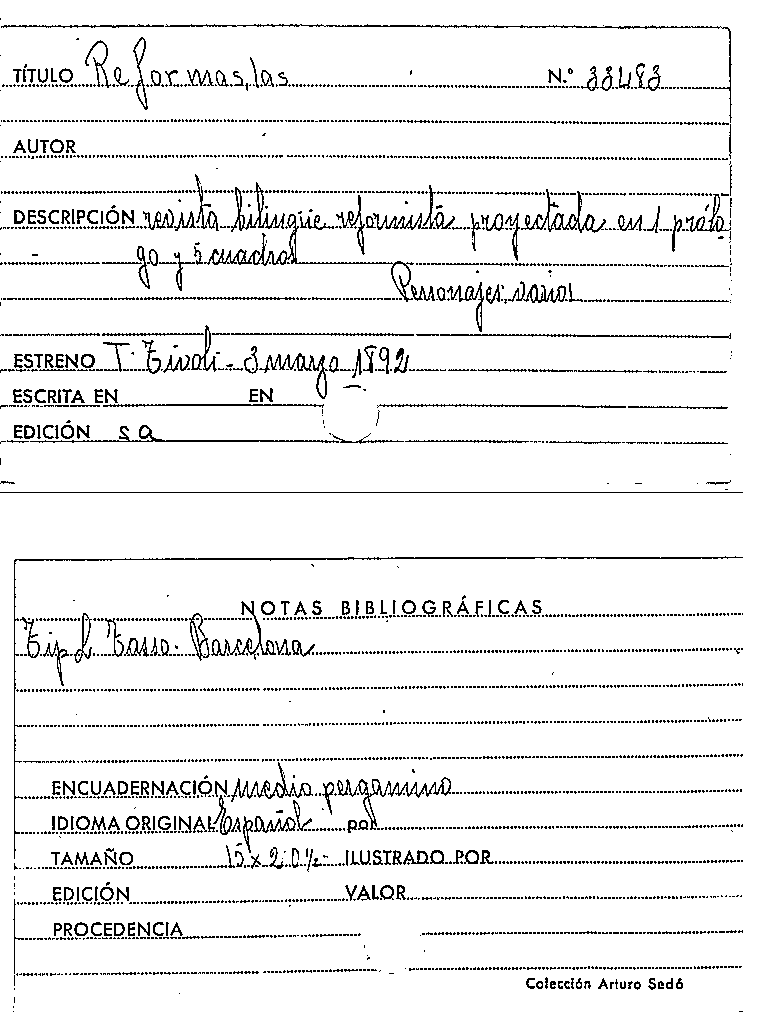 TÍTULO Reformas, las N.º 33483
AUTOR
DESCRIPCIÓN revista bilingüe reformista proyectada en 1 prólo
- go y 5 cuadros
Personajes, varios
ESTRENO T. Tivoli - 3 marzo 1892
ESCRITA EN EN
EDICIÓN s a
NOTAS BIBLIOGRÁFICAS
Tip L Tasso. Barcelona
ENCUADERNACIÓN medio pergamino
IDIOMA ORIGINAL Español por
TAMAÑO 15 x 20 ½ - ILUSTRADO POR
EDICIÓN VALOR
PROCEDENCIA
Colección Arturo Sedó